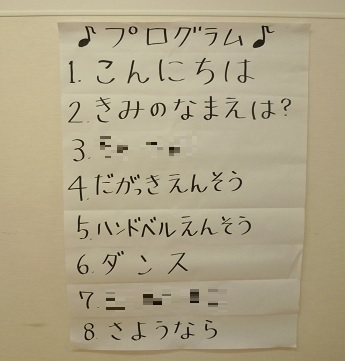 ♪プログラム♪
1. こんにちは
2. きみのなまえは?
3.
4. だがっきえんそう
5. ハンドベルえんそう
6. ダンス
7.
8 さようなら